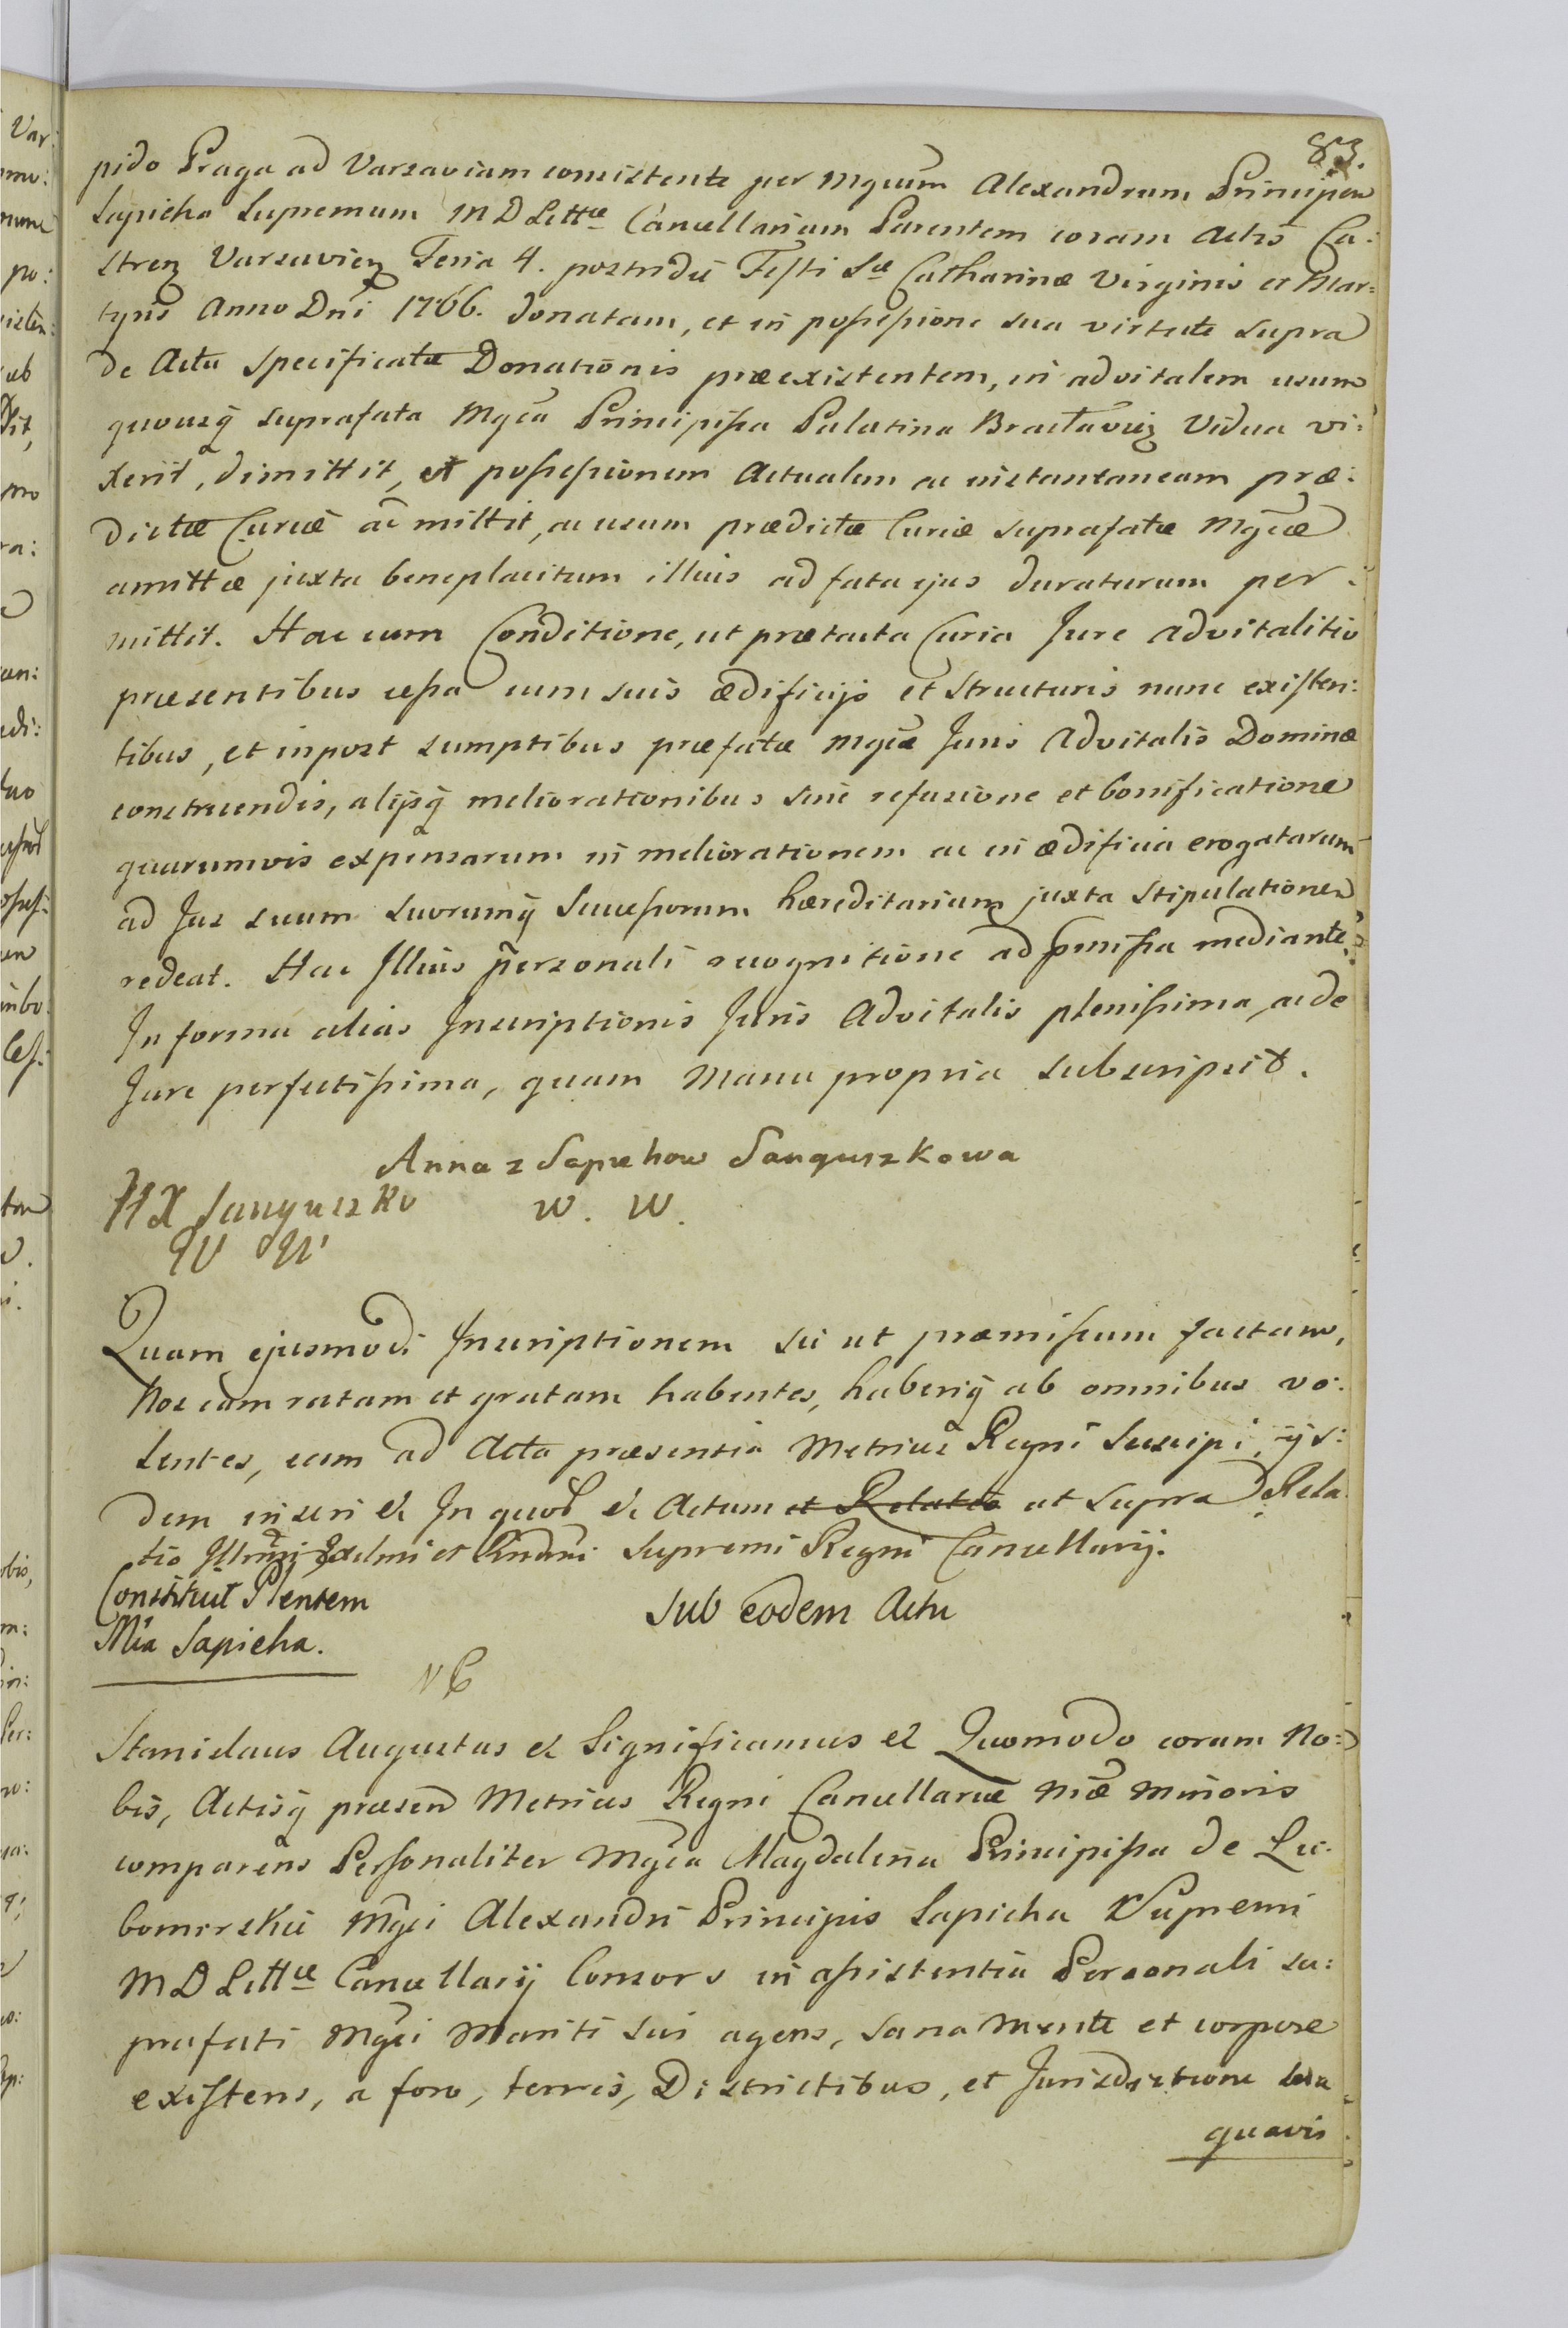 83.
pido Praga ad Varsaviam consistente per Mgcum Alexandrum Principem
Sapieha Supremum M D Littæ Cancellarium Parentem coram Actis Ca:
stren Varsavien Feria 4. postridie Festi Sæ Catharinæ Virginis et Mar=
tyris Anno Dni 1766. donatam, et in possessione sua virtute supra
de Actu specificatæ Donationis præexistentem, in advitalem usum
quousq suprafata Mgca Principissa Palatina Braclavien Vidua vi:
xerit, dimittit, et possessionem Actualem ac instantaneam præ:
dictæ Curiæ ac mittit, ac usum prædictæ Curiæ suprafatæ Mgcæ
amittæ juxta beneplacitum illius ad fata ejus duraturum per:
mittit. Hac cum Conditione, ut prætacta Curia Jure advitalitio
præsentibus cessa cum suis ædificijs et structuris nunc existen:
tibus, et inpost sumptibus præfatæ Mgcæ Juris Advitalis Dominæ
construendis, alijsq meliorationibus sine refusione et bonificatione
quarumvis expensarum in meliorationem ac in ædificia erogatarum
ad Jus suum suorumq Successorum hæreditarium juxta stipulationem
redeat. Hac Illius personali recognitione ad præmissa mediante.
In forma alias Inscriptionis Juris Advitalis plenissima, ac de
Jure perfectissima, quam Manu propria subscripsit.
Anna z Sapiehow Sanguszkowa
HX Sanguszko W. W.
W W
Quam ejusmodi Inscriptionem sic ut præmissum factam,
Nos eam ratam et gratam habentes, haberiq ab omnibus vo:
lentes, eam ad Acta præsentia Metrices Regni Suscipi, ijs:
dem inseri & In quor & Actum et Relatio ut supra Rela
tio Illmi Exclmi et Rndmi Supremi Regni Cancellarij.
Constituit Plentem
Mia Sapieha.
Sub eodem Actu
Stanislaus Augustus & Significamus & Quomodo coram No=
bis, Actisq præsen Metrices Regni Cancellariæ Ñræ Minoris
comparens Personaliter Mgca Magdalena Principissa de Lu:
bomirskie Mgci Alexandri Principis Sapieha Supremi
M D Littæ Cancellarij Consors in assistentia Personali su:
prafati Mgci Mariti sui agens, sana Mente et corpore
existens, a foro, terris, Districtibus, et Jurisdictione sua
quavis